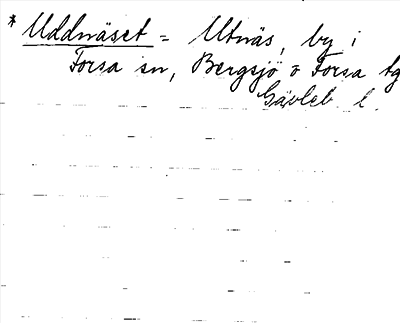 * Uddnäset = Utnäs, by i
Forsa sn, Bergsjö o Forsa tg
Gävleb. l.